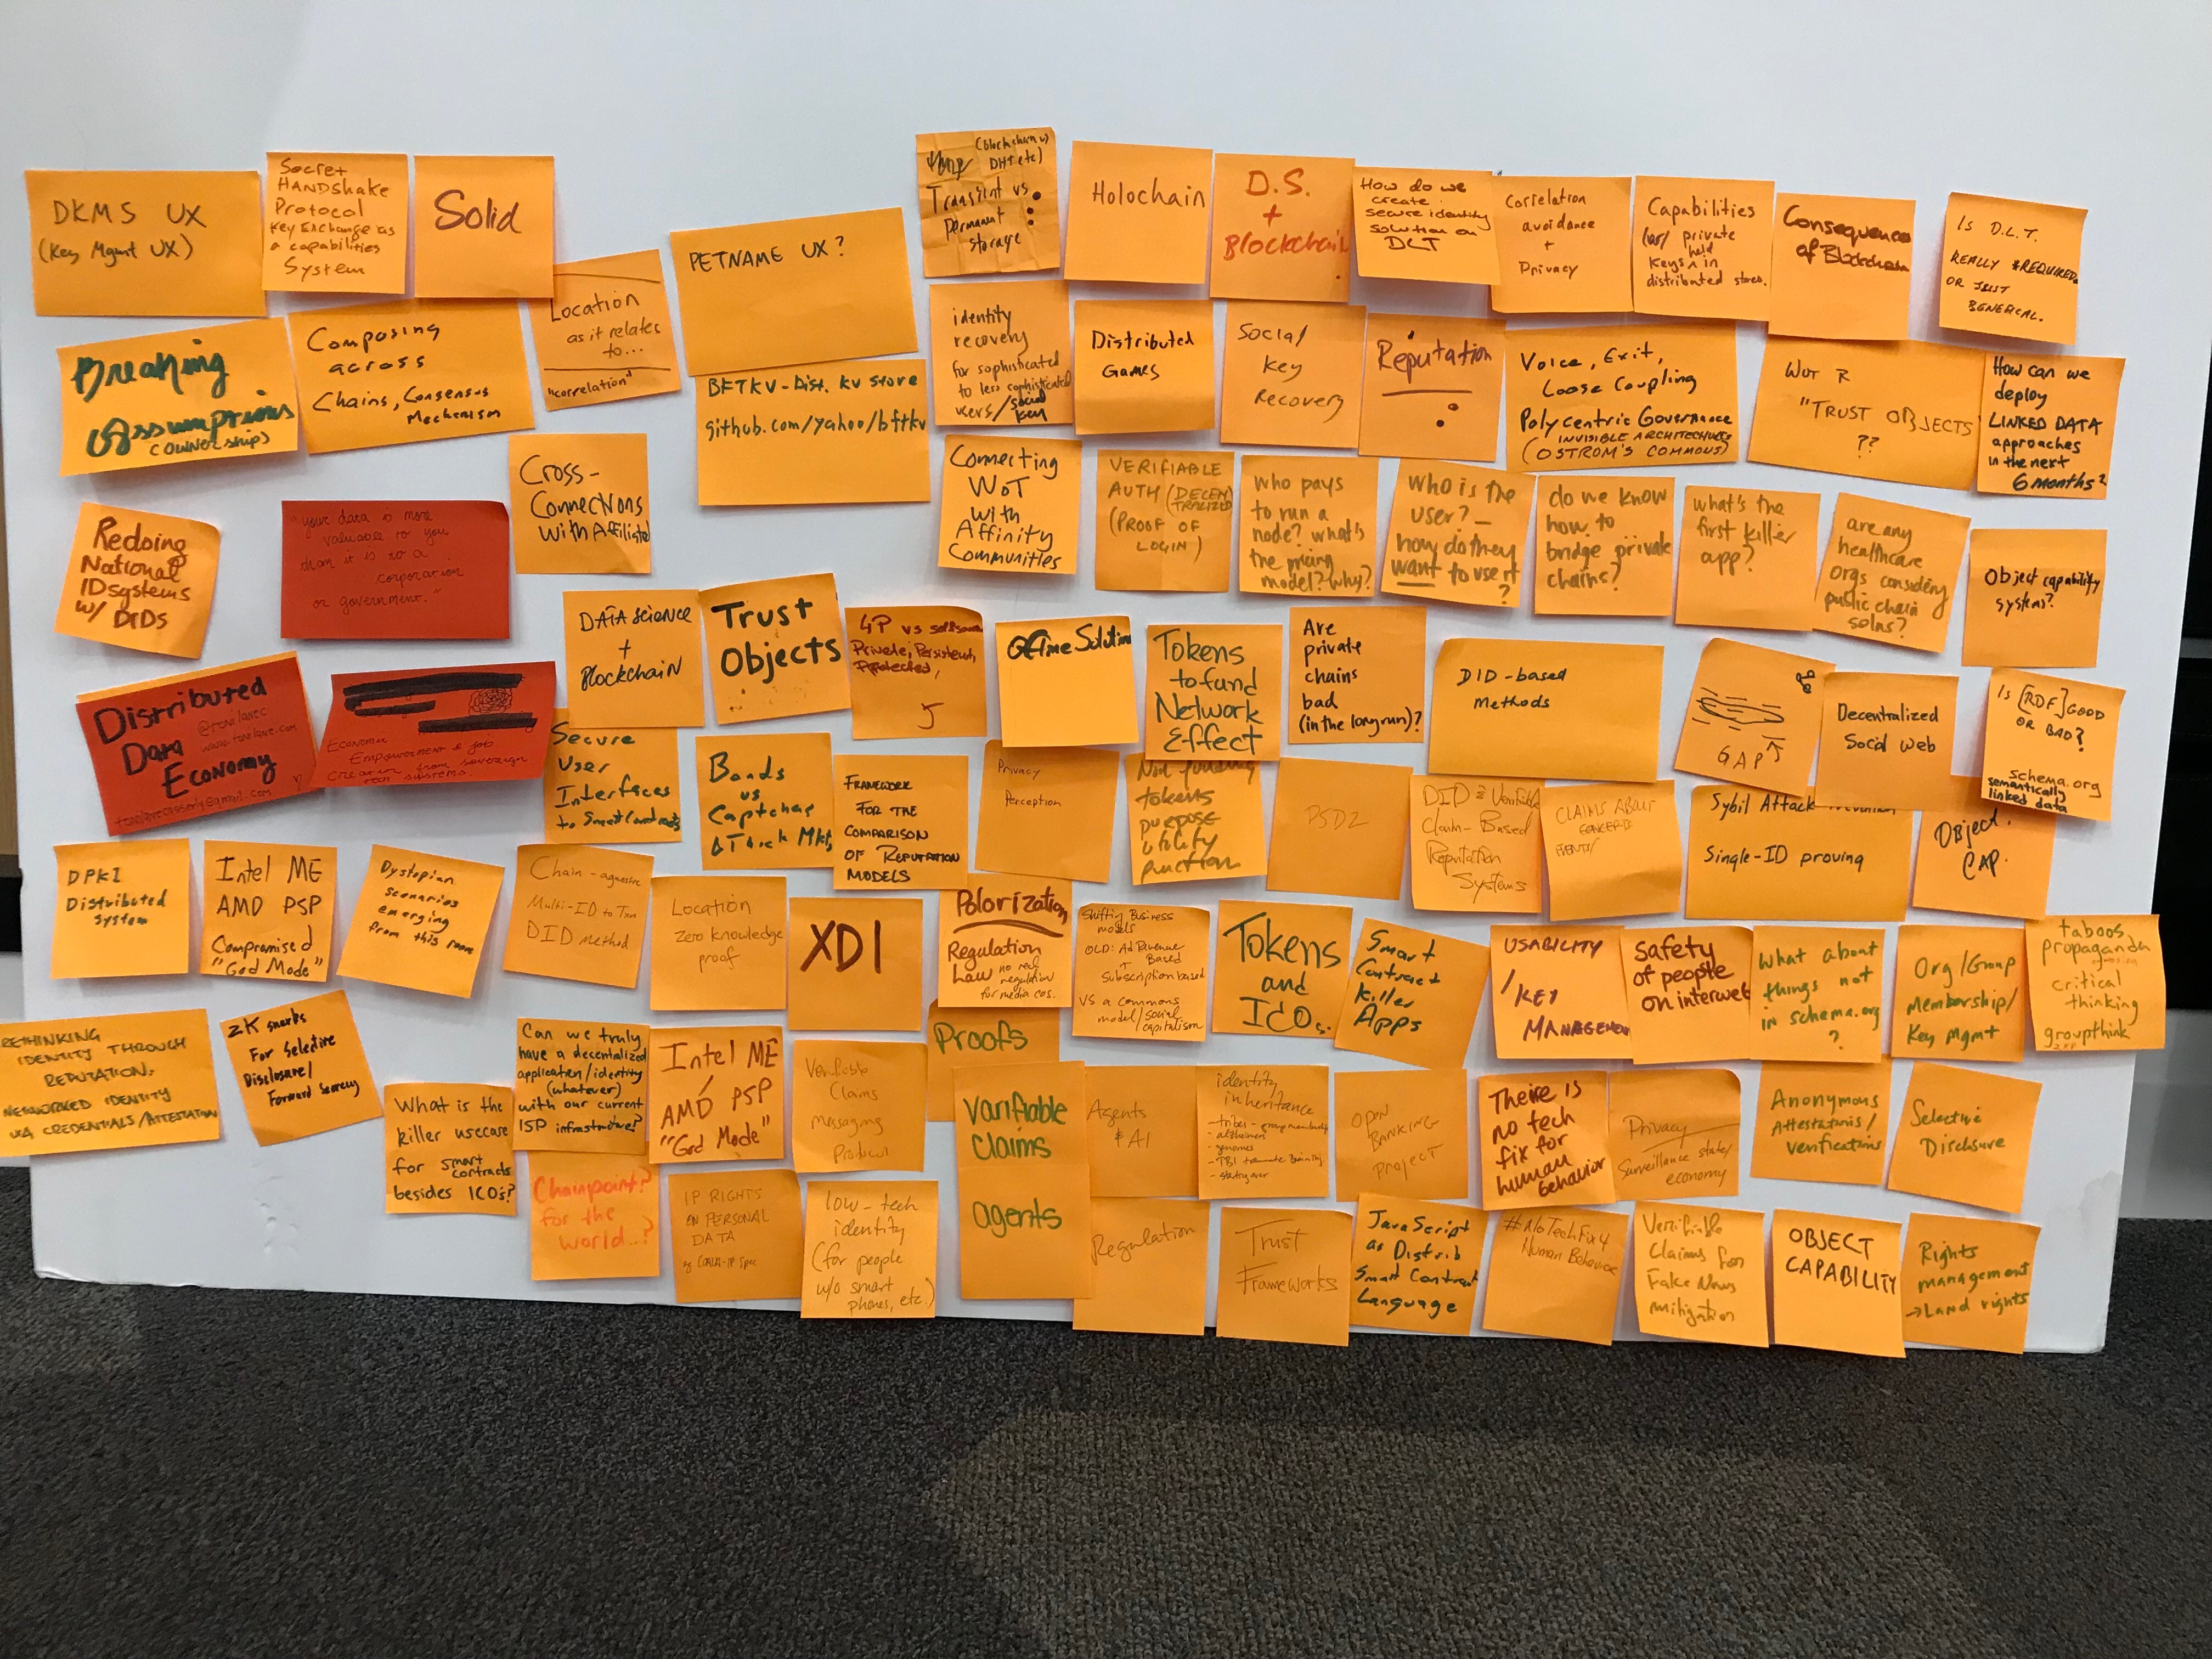 DKMS UX
(Key Mgmt UX)
Secret
HANDShake
Protocol
Key Exchange as
a capabilities
System
Solid
Location
as it relates
to...
"correlation"
PETNAME UX?
(blockchain w)
DHT etc)
Transient vs
Permanent
storage
Holochain
D.S.
+
Blockchain
How do we
create
secure identity
solution on
DLT
Correlation
avoidance
+
Privacy
Capabilities
private
held
Keys in
distributed stores.
Consequences
of Blockchain
Is D.L.T.
REALLY REQUIRED
OR JUST
BENEFICAL.
Breaking
Assumptions
(OWNERSHIP)
Composing
across
Chains, Consensus
Mechanism
BFTKV - Dist. KV store
github.com/yahoo/bftkv
identity
recovery
for sophisticated
to less sophisticated
users/social
key
Distributed
Games
Social
Key
Recovery
Reputation
Voice, Exit,
Loose Coupling
Polycentric Governance
INVISIBLE ARCHITECTURES
(OSTROM'S COMMONS)
WOT R
"TRUST OBJECTS"
??
How can we
deploy
LINKED DATA
approaches
in the next
6 months?
Redoing
National
ID systems
w/ DIDs
"your data is more
valuable to you
than it is to a
corporation
or government."
Cross-
Connections
with Affiliates
Connecting
WoT
with
Affinity
Communities
VERIFIABLE
AUTH (DECEN
TRALIZED)
(PROOF OF
LOGIN)
who pays
to run a
node? what's
the pricing
model? why?
Who is the
user? -
how do they
want to use it
?
do we know
how to
bridge private
chains?
what's the
first killer
app?
are any
healthcare
orgs considering
public chain
solns?
Object capability
systems?
Distributed
Data
Economy
@tonilanec
www.tonilane.com
tonilanecasserly@gmail.com
Economic
Empowerment & job
creation from sovereign
tech systems.
DATA SCIENCE
+
BlockchaiN
Trust
Objects
4P vs selfsov
Private, Persistent,
Protected,
Offline Solution
Tokens
to fund
Network
Effect
Are
private
chains
bad
(in the long run)?
DID-based
methods
GAP
Decentralized
Social web
Is [RDF] GOOD
OR BAD?
schema.org
semantically
linked data
Secure
User
Interfaces
to Smart Contracts
Bonds
vs
Captchas
FRAMEWORK
FOR THE
COMPARISON
OF REPUTATION
MODELS
Privacy
Perception
Not funding
tokens
purpose
utility
function
PSD2
DID & Verifiable
Claim-Based
Reputation
Systems
CLAIMS ABOUT
EVENTS/
Sybil Attack Prevention
Single-ID proving
Object.
CAP.
DPKI
Distributed
System
Intel ME
AMD PSP
Compromised
"God Mode"
Dystopian
scenarios
emerging
from this room
Chain-agnostic
Multi-ID to Txn
DID method
Location
Zero knowledge
proof
XDI
Polorization
Regulation
Law no real
regulation
for media cos.
Shifting Business
models
OLD: Ad Revenue
Based
+
Subscription based
VS a commons
model/social
capitalism
Tokens
and
ICOs.
Smart
Contract
Killer
Apps
USABILITY
/KEY
MANAGEMENT
Safety
of people
on interweb
What about
things not
in schema.org
?
Org/Group
Membership/
Key Mgmt
taboos
propaganda
critical
thinking
groupthink
RETHINKING
IDENTITY THROUGH
REPUTATION,
NETWORKED IDENTITY
VIA CREDENTIALS/ATTESTATION
ZK snarks
For Selective
Disclosure/
Forward Secrecy
What is the
killer usecase
for smart
contracts
besides ICO's?
Can we truly
have a decentralized
application/identity
(whatever)
with our current
ISP infrastructure?
Intel ME
/
AMD PSP
"God Mode"
Verifiable
Claims
messaging
Protocol
Proofs
Varifiable
Claims
agents
Agents
& AI
identity
inheritance
- tribes - group membership
- alzheimers
- genomes
- TBI traumatic brain inj.
- starting over
OPEN
BANKING
PROJECT
There is
no tech
fix for
human
behavior
Privacy
Surveillance state/
economy
Anonymous
Attestations/
verifications
Selective
Disclsure
Chainpoint?
for the
world..?
IP RIGHTS
ON PERSONAL
DATA
eg COALA-IP Spec
low-tech
identity
(for people
w/o smart
phones, etc.)
Regulation
Trust
Frameworks
JavaScript
as Distrib
Smart Contract
Language
#NoTechFix4
Human Behavior
Verifiable
Claims for
Fake News
mitigation
OBJECT
CAPABILITY
Rights
management
→Land rights